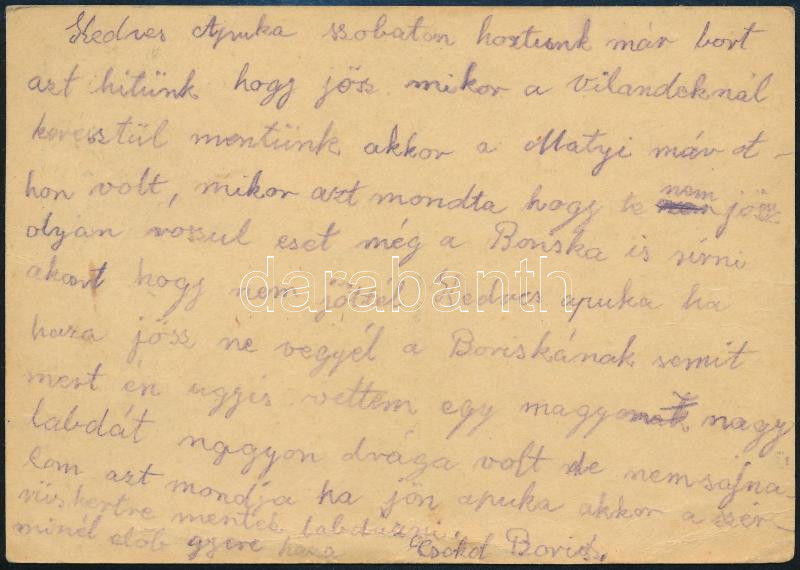 Kedves Apuka szobaton hoztunk már bort
azt hitünk hogy jösz mikor a vilandeknál
keresztül mentünk akkor a Matyi már ot-
hon volt, mikor azt mondta hogy te nem jössz
olyan roszul eset még a Boriska is sirni
akart hogy nem jöttél Kedves apuka ha
haza jössz ne vegyél a Boriskának semit
mert én uggis vettem egy magyon nagy
labdát nagyon drága volt de nem sajna-
lom azt mondja ha jön apuka akkor a
mentek labdazni.
minél elöb gyere haza Csokol Boris.
darabanth.com